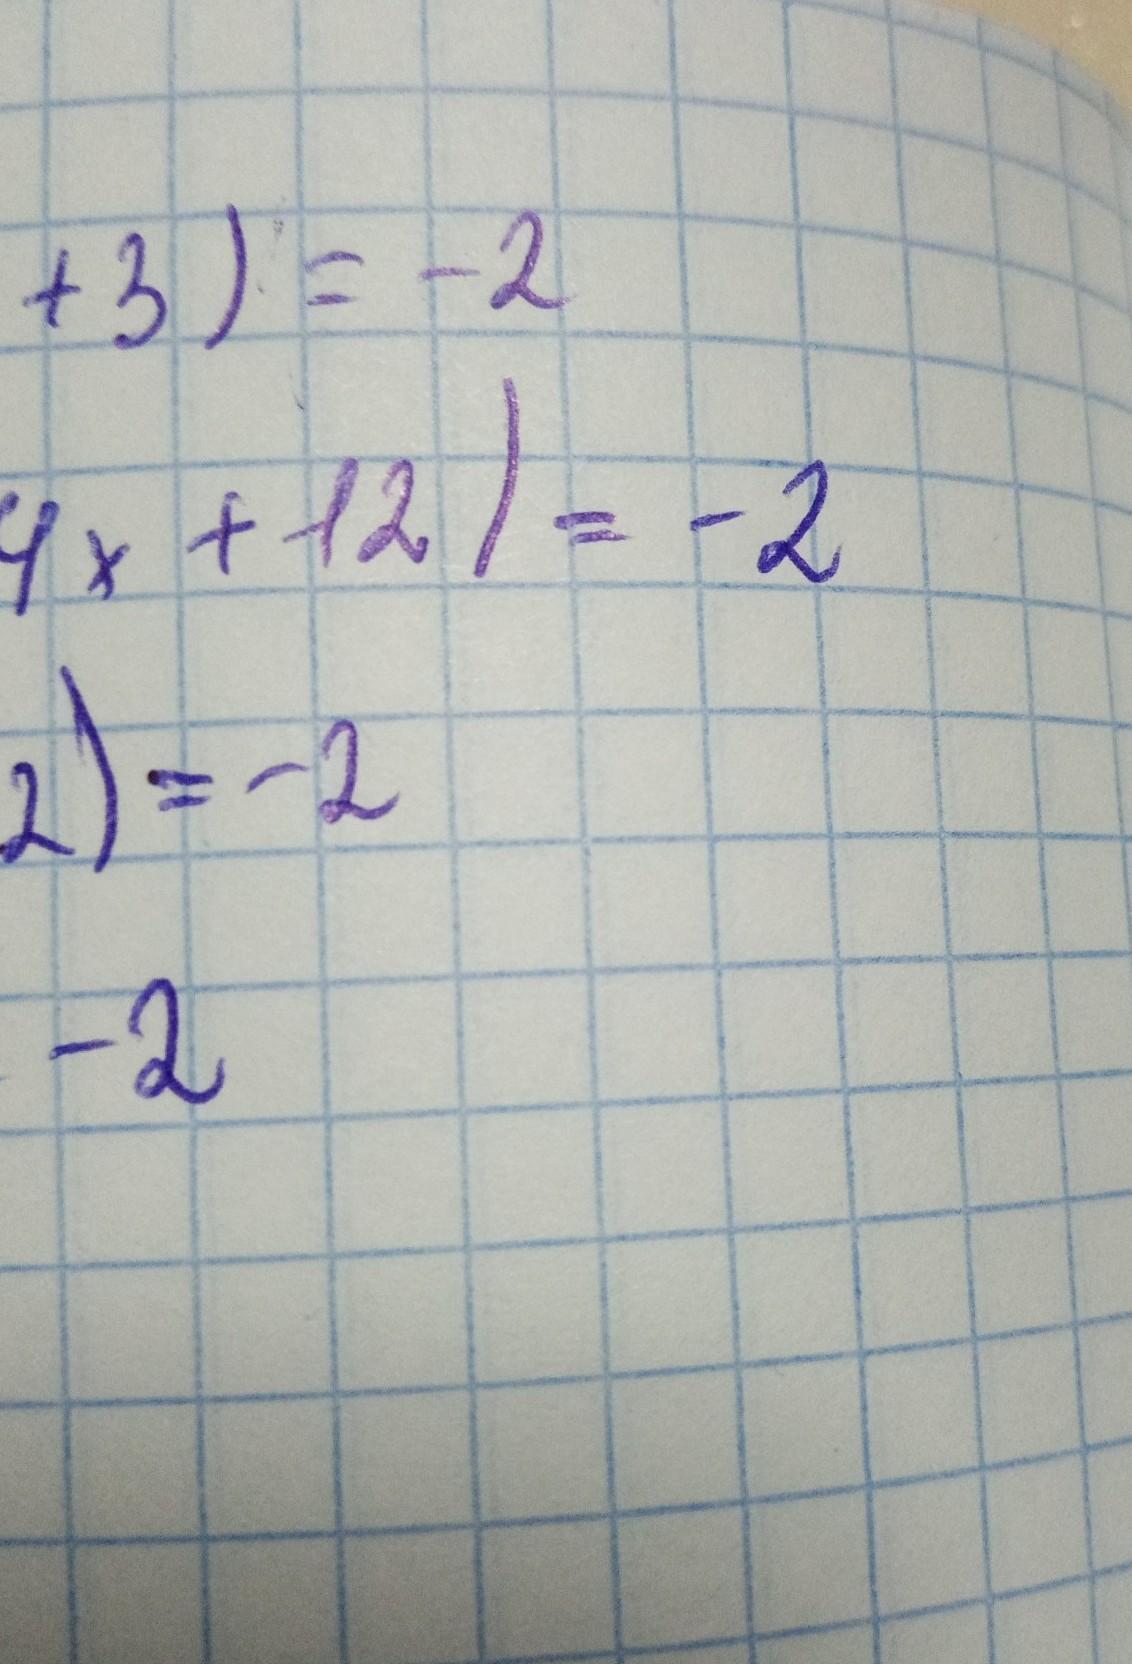 +3) = -2
4x + 12) = -2
2) = -2
-2